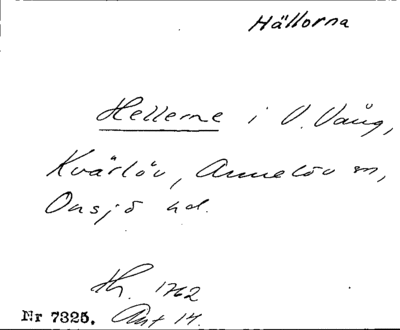 Hällorna
Hellerne i V. Vång,
Kvärlöv, Annelöv sn,
Onsjö hd.
Lh. 1762
Nr 7325. Akt 14.